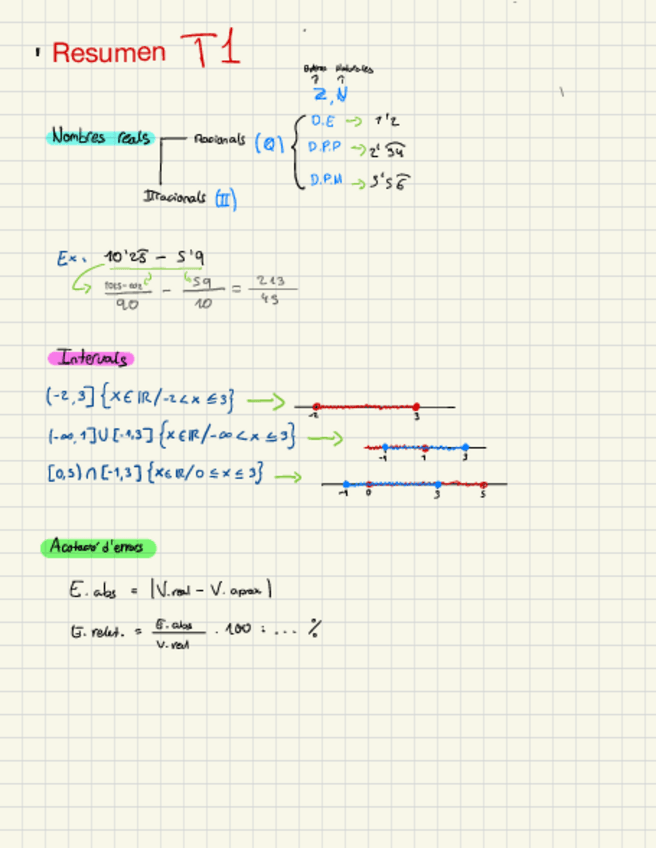 Resumen T1
Enters Naturales
Z, N
Nombres reals
Racionals (Q)
D.E → 1'2
D.P.P → 2'34
D.P.M → 5'56
Irracionals (II)
Ex. 10'25 - 5'9
90 - 59/10 = 213/45
Intervals
(-2,3] {x∈IR/-2<x≤3} →
-2 3
(-∞,1]∪[-1,3] {x∈IR/-∞<x≤3} →
-1 1 3
[0,5)∩[-1,3] {x∈IR/0≤x≤3} →
-1 0 3 5
Acotació d'errors
E.abs = |V.real - V.aprox|
E.relat. = E.abs/V.real . 100 : ... %